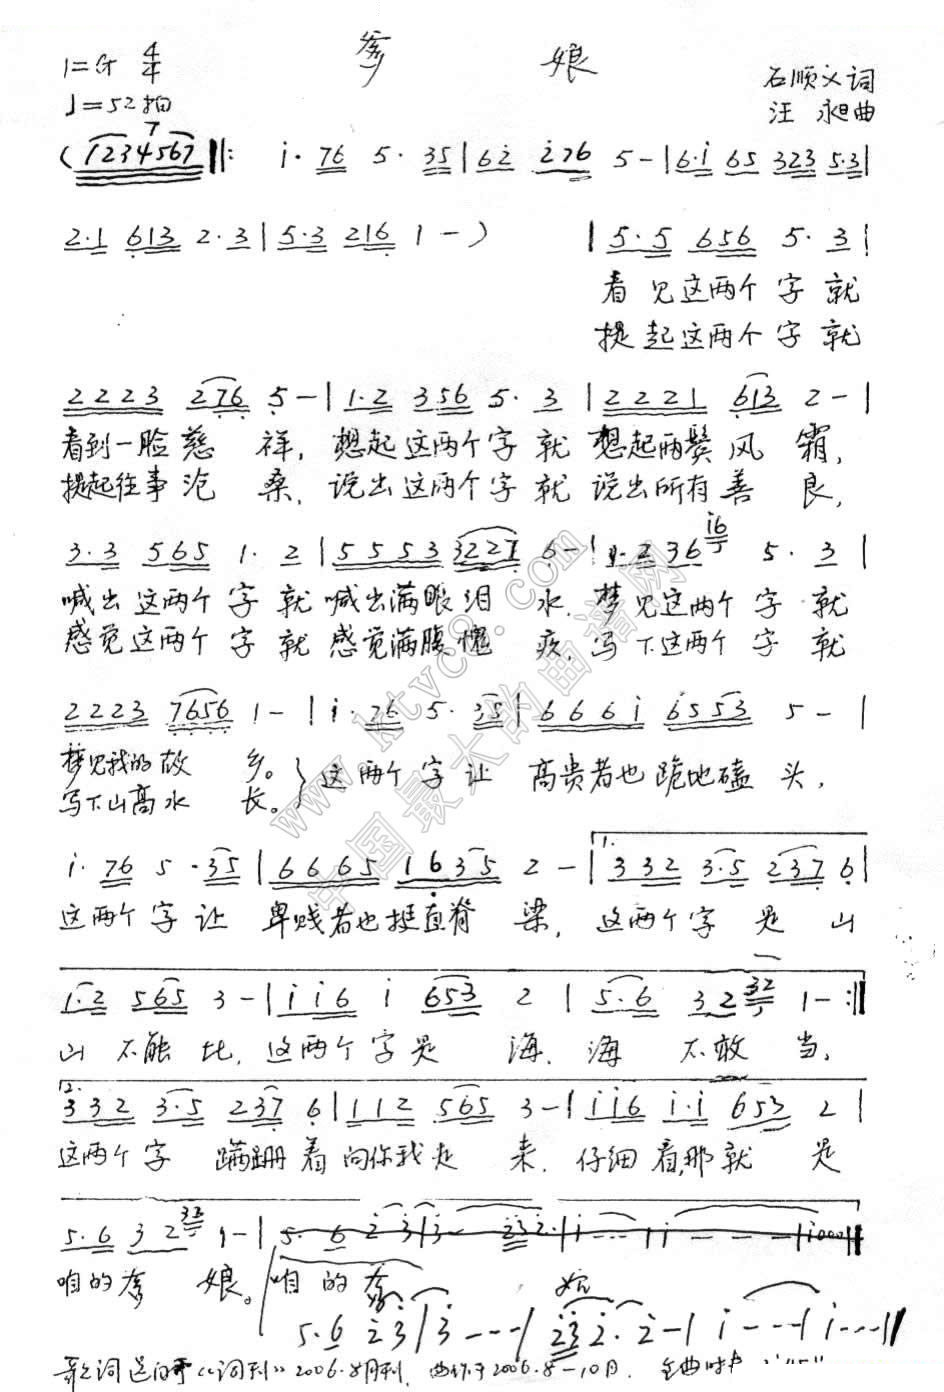 爹 娘
1=G 4/4
♩=52拍
石顺义词
汪永旦曲
(1234567 ‖: i· 76 5· 35 | 62 276 5 - | 6·i 65 323 5·3 |
2·1 613 2·3 | 5·3 216 1 - ) | 5·5 656 5· 3 |
看见这两个字就
提起这两个字就
2223 276 5 - | 1·2 356 5· 3 | 2221 613 2 - |
看到一脸慈祥，想起这两个字就想起两鬓风霜，
提起往事沧桑，说出这两个字就说出所有善良，
3·3 565 1· 2 | 5553 3227 6 - | 1·2 36 i6 5· 3 |
喊出这两个字就喊出满眼泪水，梦见这两个字就
感觉这两个字就感觉满腹愧疚，写下这两个字就
2223 7656 1 - | i· 76 5· 35 | 666i i553 5 - |
梦见我的故乡。}这两个字让高贵者也跪地磕头，
写下山高水长。
i· 76 5 · 35 | 6665 1635 2 - | 1. 332 3·5 237 6 |
这两个字让卑贱者也挺直脊梁，这两个字是山
1·2 565 3 - | ii6 i 653 2 | 5·6 32 32 1 - :‖
山不能比，这两个字是海，海不敢当，
2. 332 3·5 237 6 | 112 565 3 - | ii6 i·i 653 2 |
这两个字蹒跚着向你我走来，仔细看，那就是
5·6 32 32 1 - | 5· 6 2 3 | 3 - 232· | i - - | i - - - | i000 ‖
咱的爹娘。咱的爹娘
5·6 23 | 3 - - - | 232· 2 - | i - - - | i - - - ‖
歌词选自《词刊》2006.8月刊，曲作于2006.8-10月.
www.ktvc8.com
中国最大的曲谱网